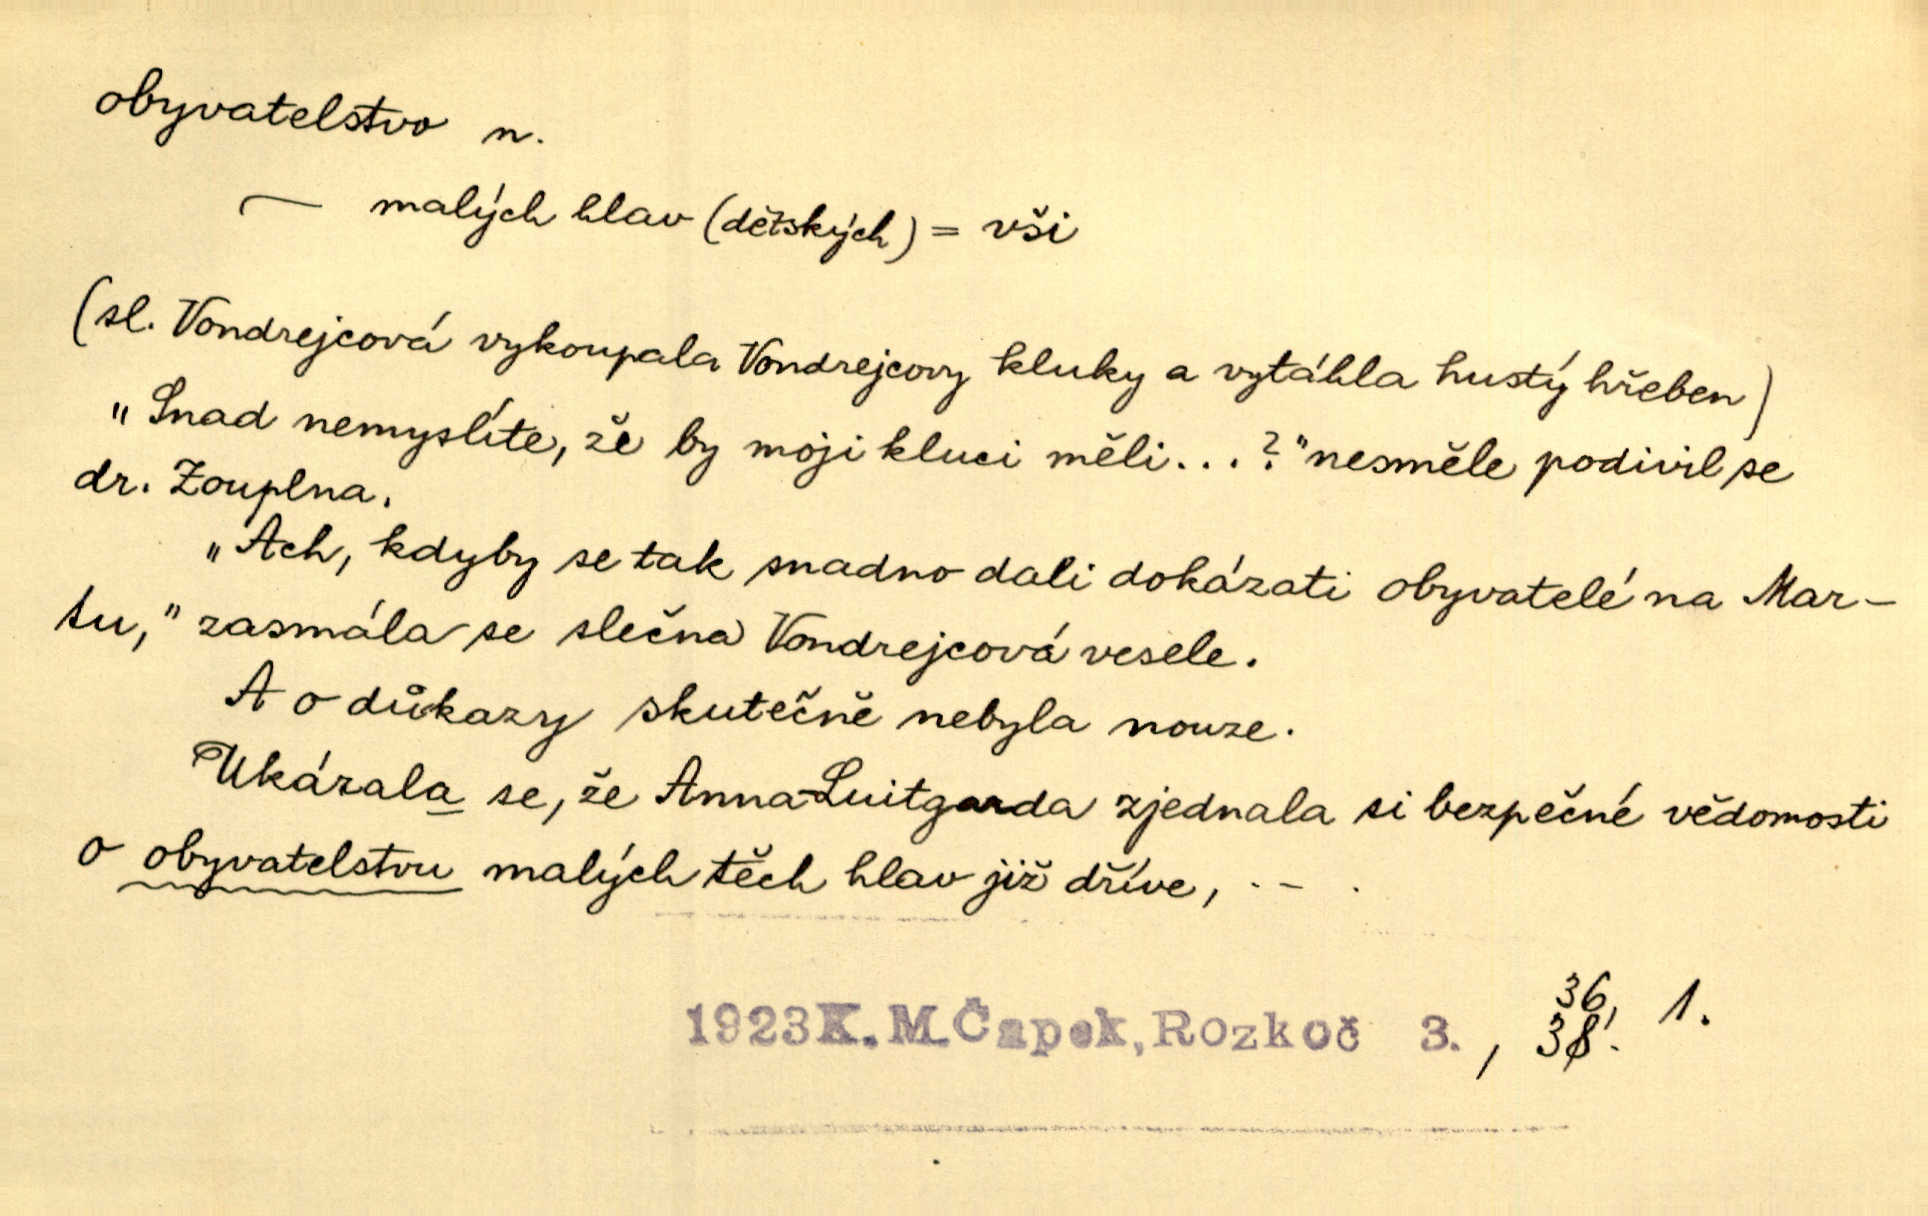 obyvatelstvo n.
— malých hlav (dětských) = vši
(sl. Vondrejcová vykoupala Vondrejcovy kluky a vytáhla hustý hřeben)
"Snad nemyslíte, že by moji kluci měli...?" nesměle podivil se
dr. Zouplna.
"Ach, kdyby se tak snadno dali dokázati obyvatelé na Mar-
tu," zasmála se slečna Vondrejcová vesele.
A o důkazy skutečně nebyla nouze.
Ukázala se, že Anna-Luitgarda zjednala si bezpečné vědomosti
o obyvatelstvu malých těch hlav již dříve, . - .
36,
1923 K. M. Čapek, Rozkoč 3. , 38. 1.